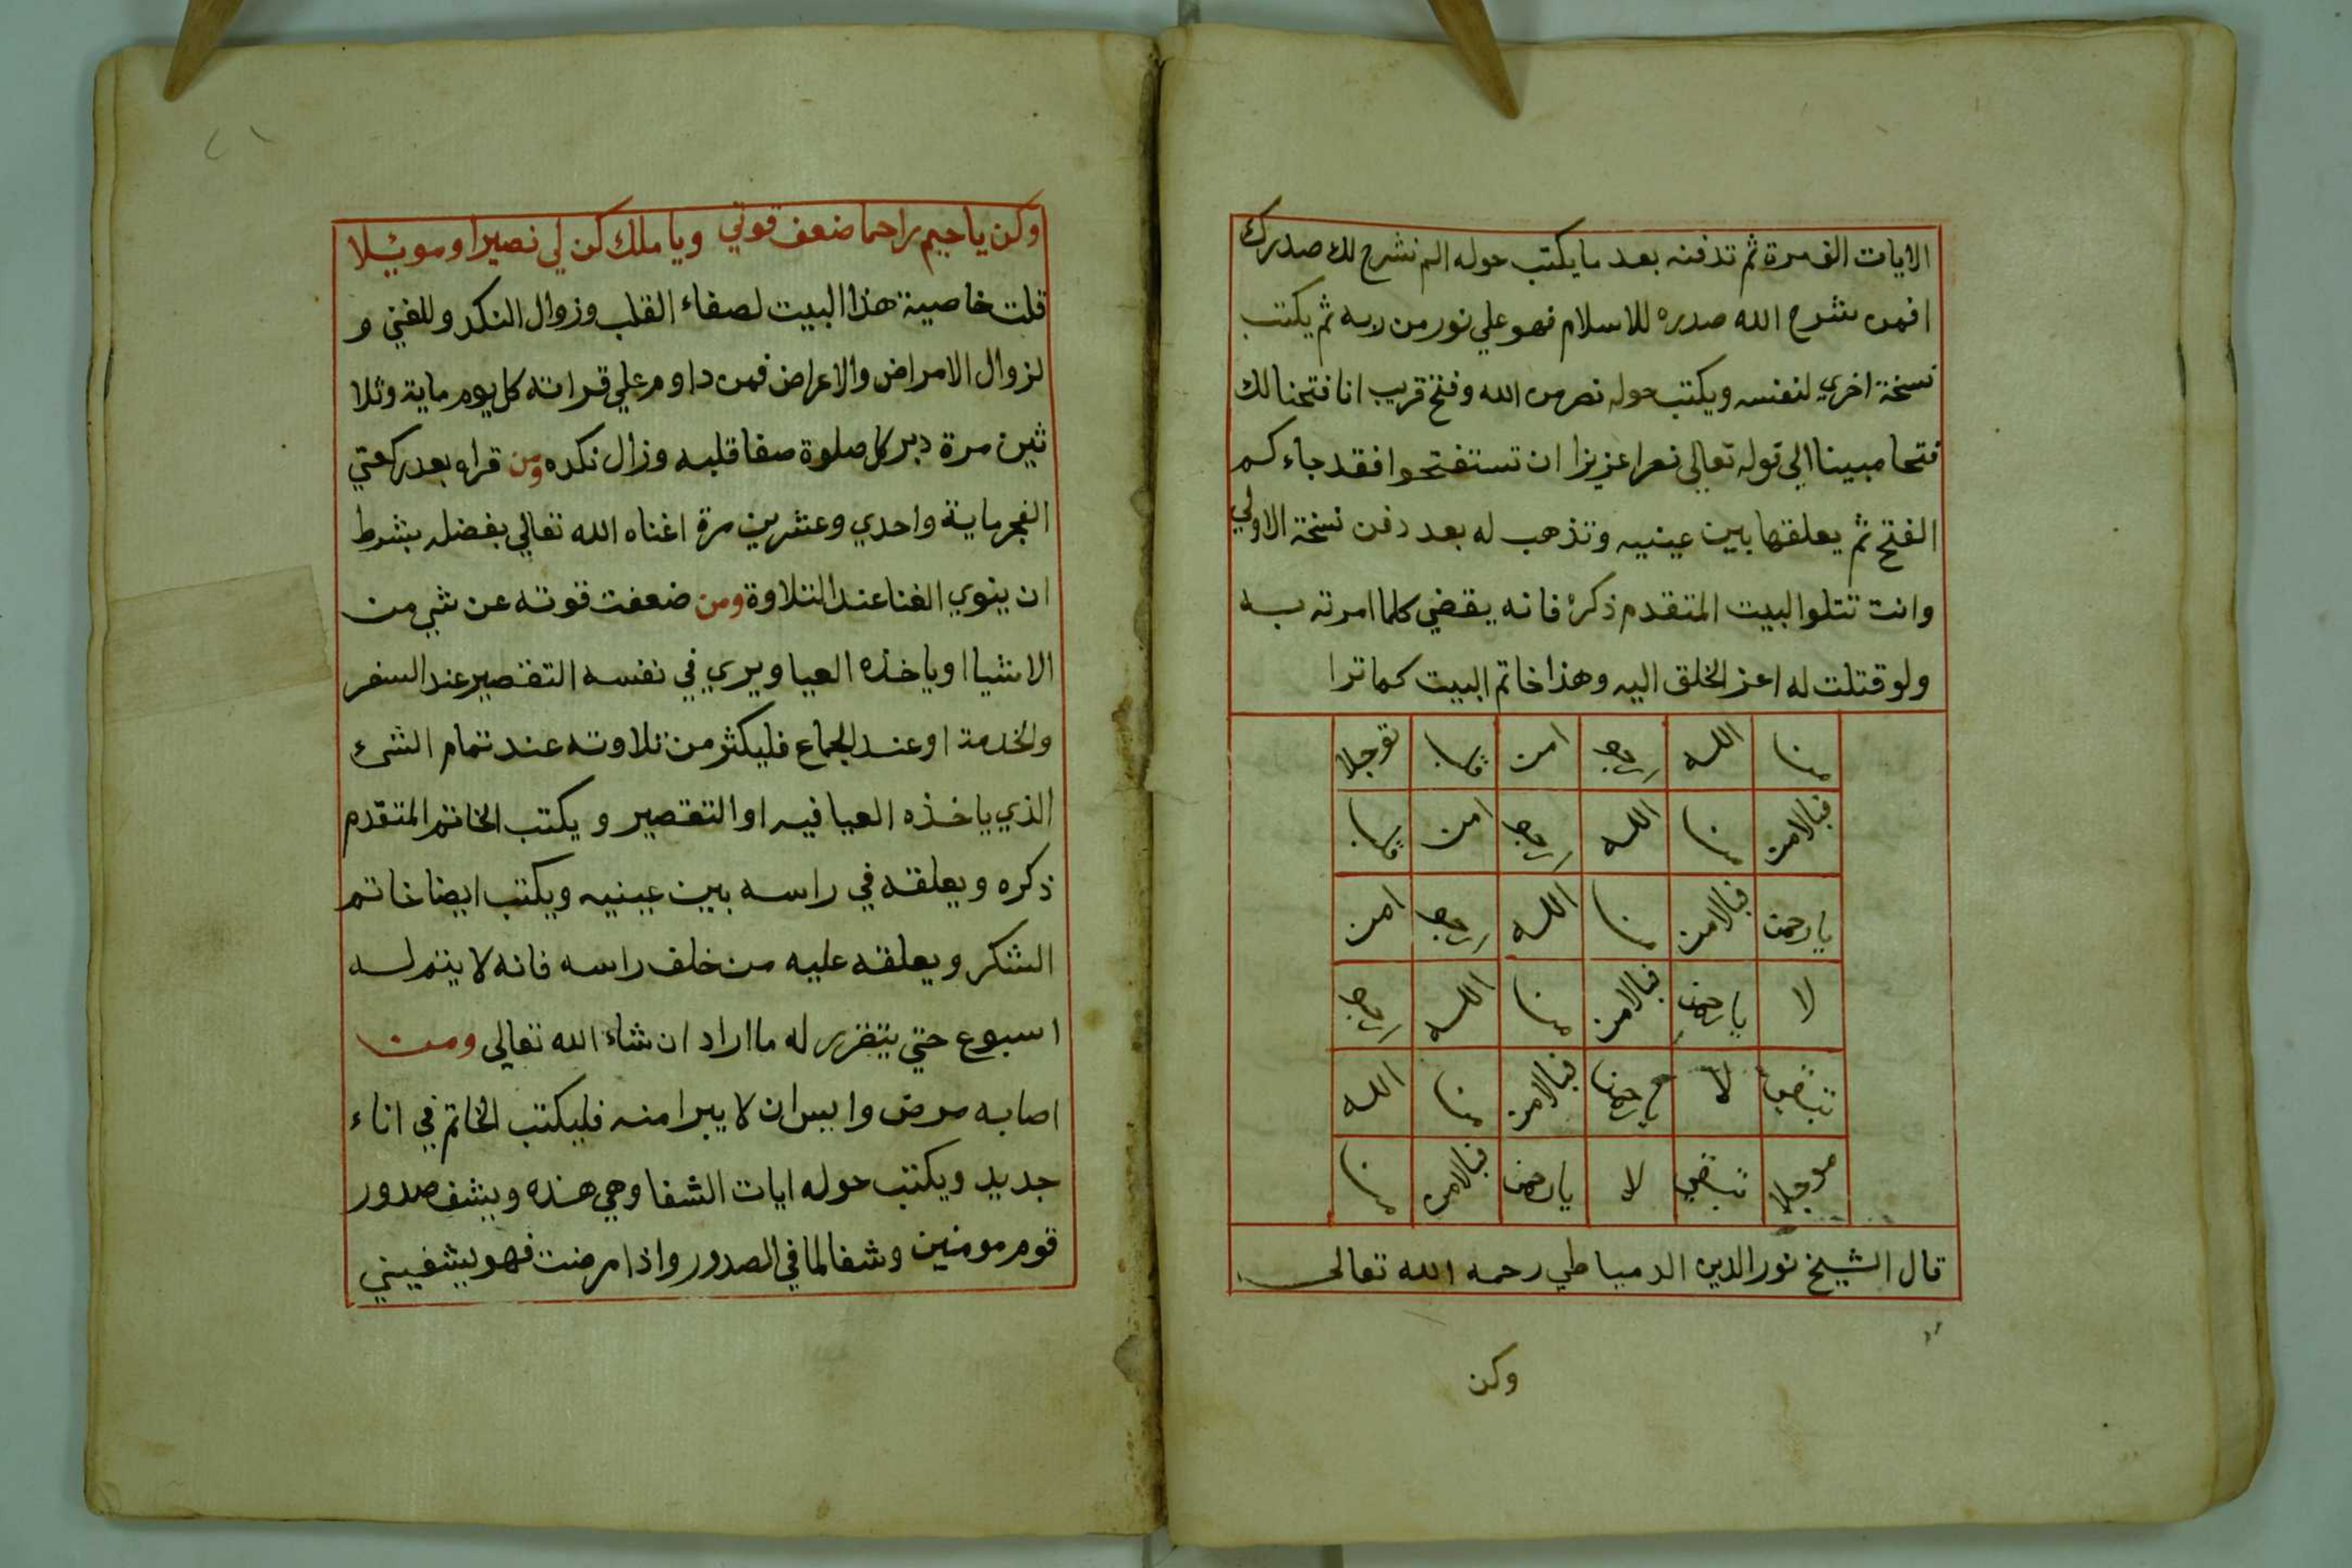 الايات الف مرة ثم تدفنه بعد ما يكتب حوله الم نشرح لك صدرك
افمن شرح الله صدره للاسلام فهو علي نور من ربه ثم يكتب
نسخة اخري لنفسه ويكتب حوله نصر من الله وفتح قريب انا فتحنا لك
فتحا مبينا الي قوله تعالي نصرا عزيزا ان تستفتحوا فقد جاءكم
الفتح ثم يعلقها بين عينيه وتذهب له بعد دفن نسخة الاولي
وانت تتلوا لبيت المتقدم ذكره فانه يقضي كلما امرته به
ولو قتلت له اعز الخلق اليه وهذا خاتم البيت كما ترا
منا الله امن
فبالامن منا الله امن
يارحمن فبالامن منا الله امن
لا يارحمن فبالامن منا الله
لا فبالامن منا الله
لا يارحمن فبالامن منا
قال الشيخ نور الدين الدمياطي رحمه الله تعالى
وكن
وكن يا حيم راحما ضعف قوتي ويا ملك كن لي نصيرا وموئلا
قلت خاصية هذا البيت لصفاء القلب وزوال النكد وللغني و
لزوال الامراض والاعراض فمن داوم علي قراته كل يوم ماية وثلا
ثين مرة دبر كل صلوة صفا قلبه وزال نكده ومن قراه بعد ركعتي
الفجر ماية واحدي وعشرين مرة اغناه الله تعالي بفضله بشرط
ان ينوي الغنا عند التلاوة ومن ضعفت قوته عن شي من
الاشيا او ياخذه العيا ويري في نفسه التقصير عند السفر
والخدمة او عند الجماع فليكثر من تلاوته عند تمام الشئ
الذي ياخذه العيا فيه او التقصير و يكتب الخاتم المتقدم
ذكره ويعلقه في راسه بين عينيه ويكتب ايضا خاتم
الشكر ويعلقه عليه من خلف راسه فانه لا يتم له
اسبوع حتي يتقرر له ما اراد ان شاء الله تعالى ومن
اصابه مرض وايس ان لا يبرا منه فليكتب الخاتم في اناء
جديد ويكتب حوله ايات الشفا وهي هذه ويشف صدور
قوم مومنين وشفا لما في الصدور واذا مرضت فهو يشفيني